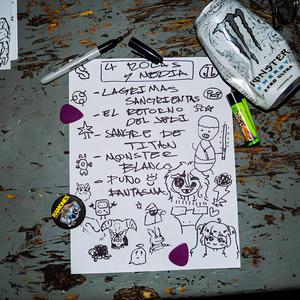 4 ROCAS
Y MEDIA
- LAGRIMAS
SANGRIENTAS
- EL RETORNO
DEL JEDI
- SANGRE DE
TITAN
- MONSTER
BLANCO
- PUÑO
FANTASMA
MONSTER
RAMONES